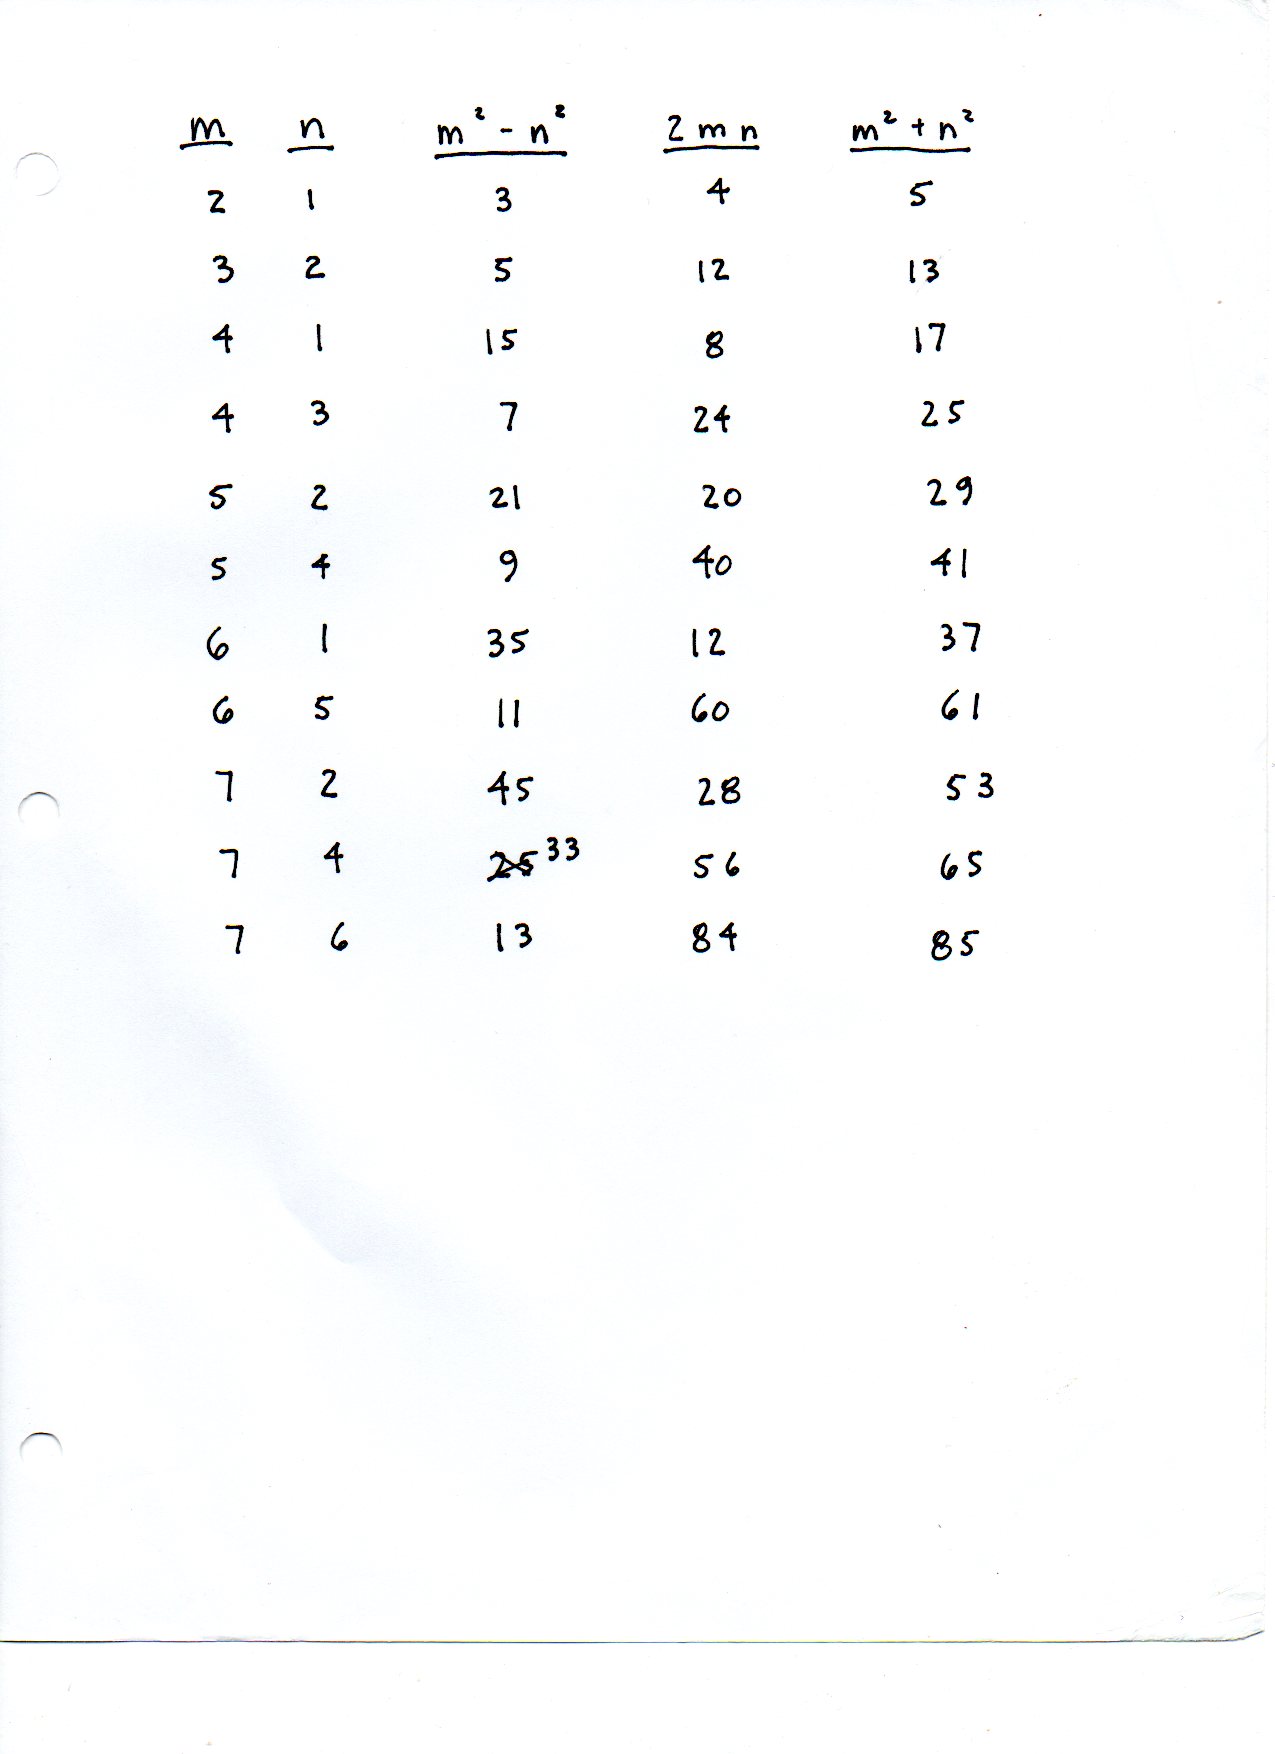 m n m² - n² 2mn m² + n²
2 1 3 4 5
3 2 5 12 13
4 1 15 8 17
4 3 7 24 25
5 2 21 20 29
5 4 9 40 41
6 1 35 12 37
6 5 11 60 61
7 2 45 28 53
7 4 25 33 56 65
7 6 13 84 85